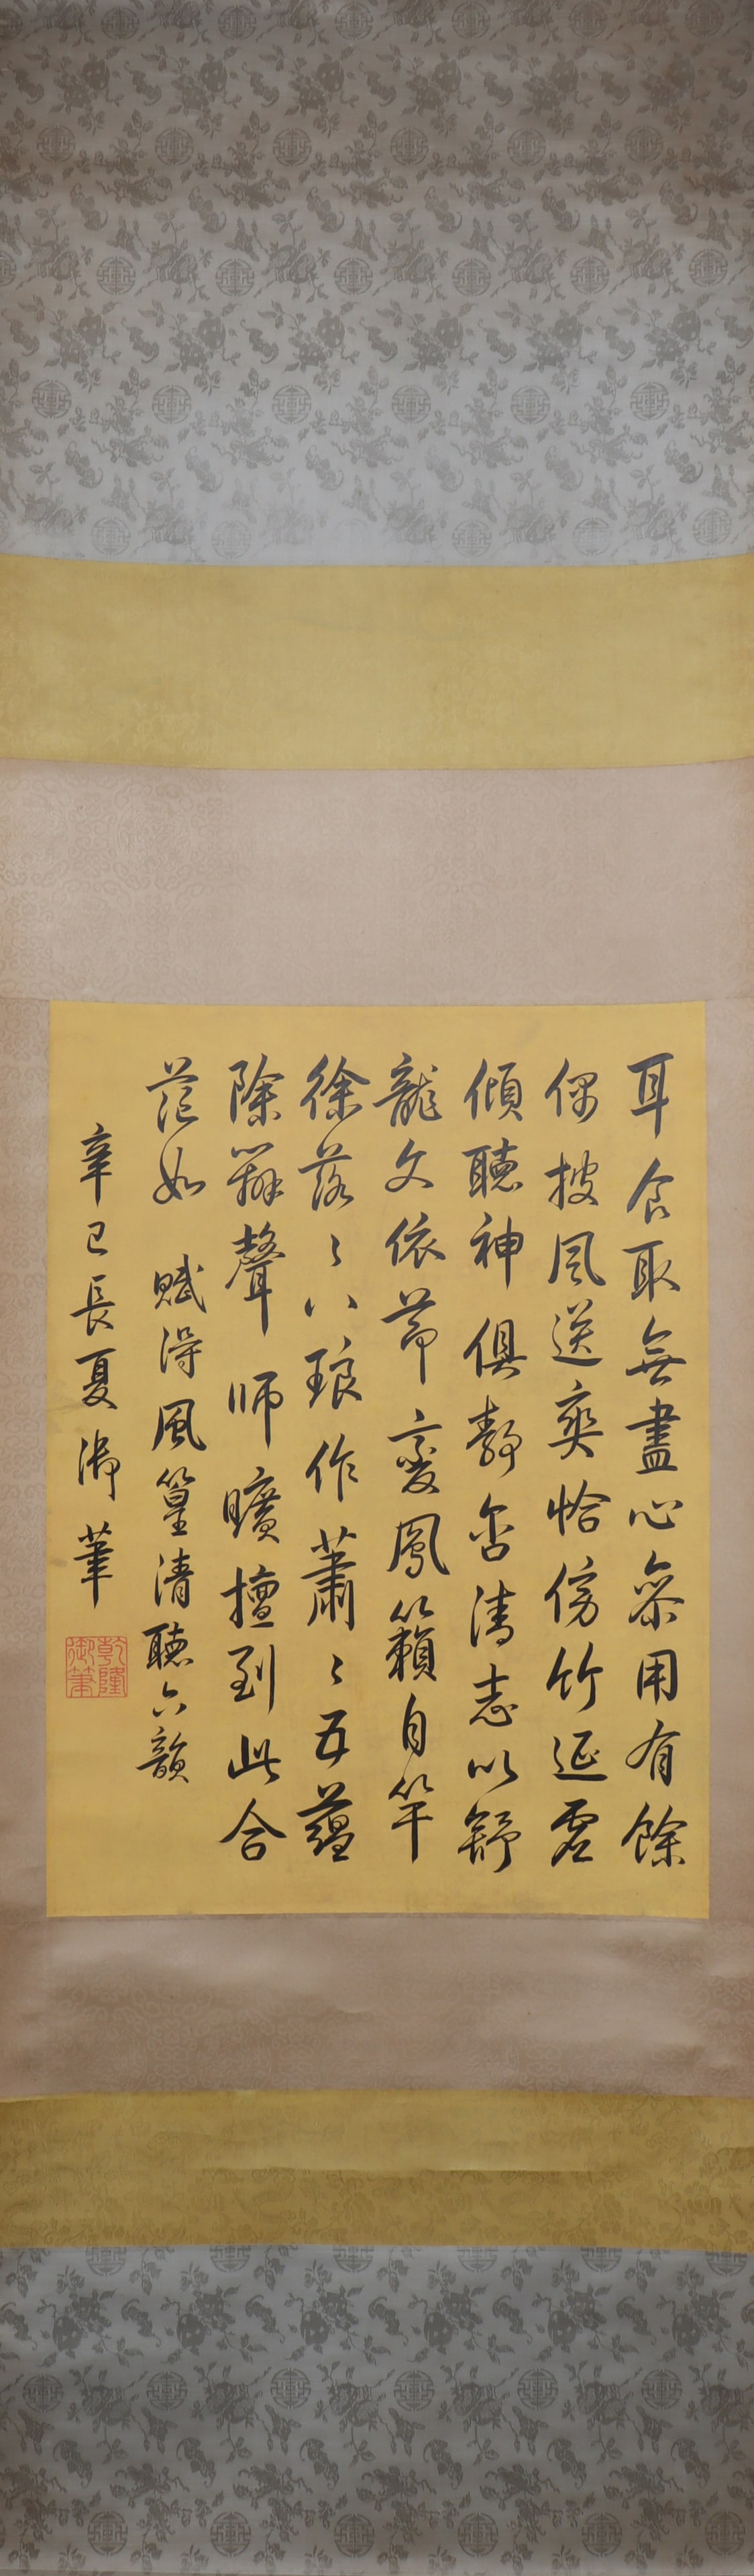 耳食取無盡心齋用有餘
偶披風送爽恰傍竹延虛
傾聽神俱靜含清志以舒
龍文依節變鳳籟自竿
徐落〻八琅作蕭〻五蘊
除辭聲師曠擅到此合
茫如 賦得風篁清聽六韻
辛巳長夏御筆
乾隆御筆